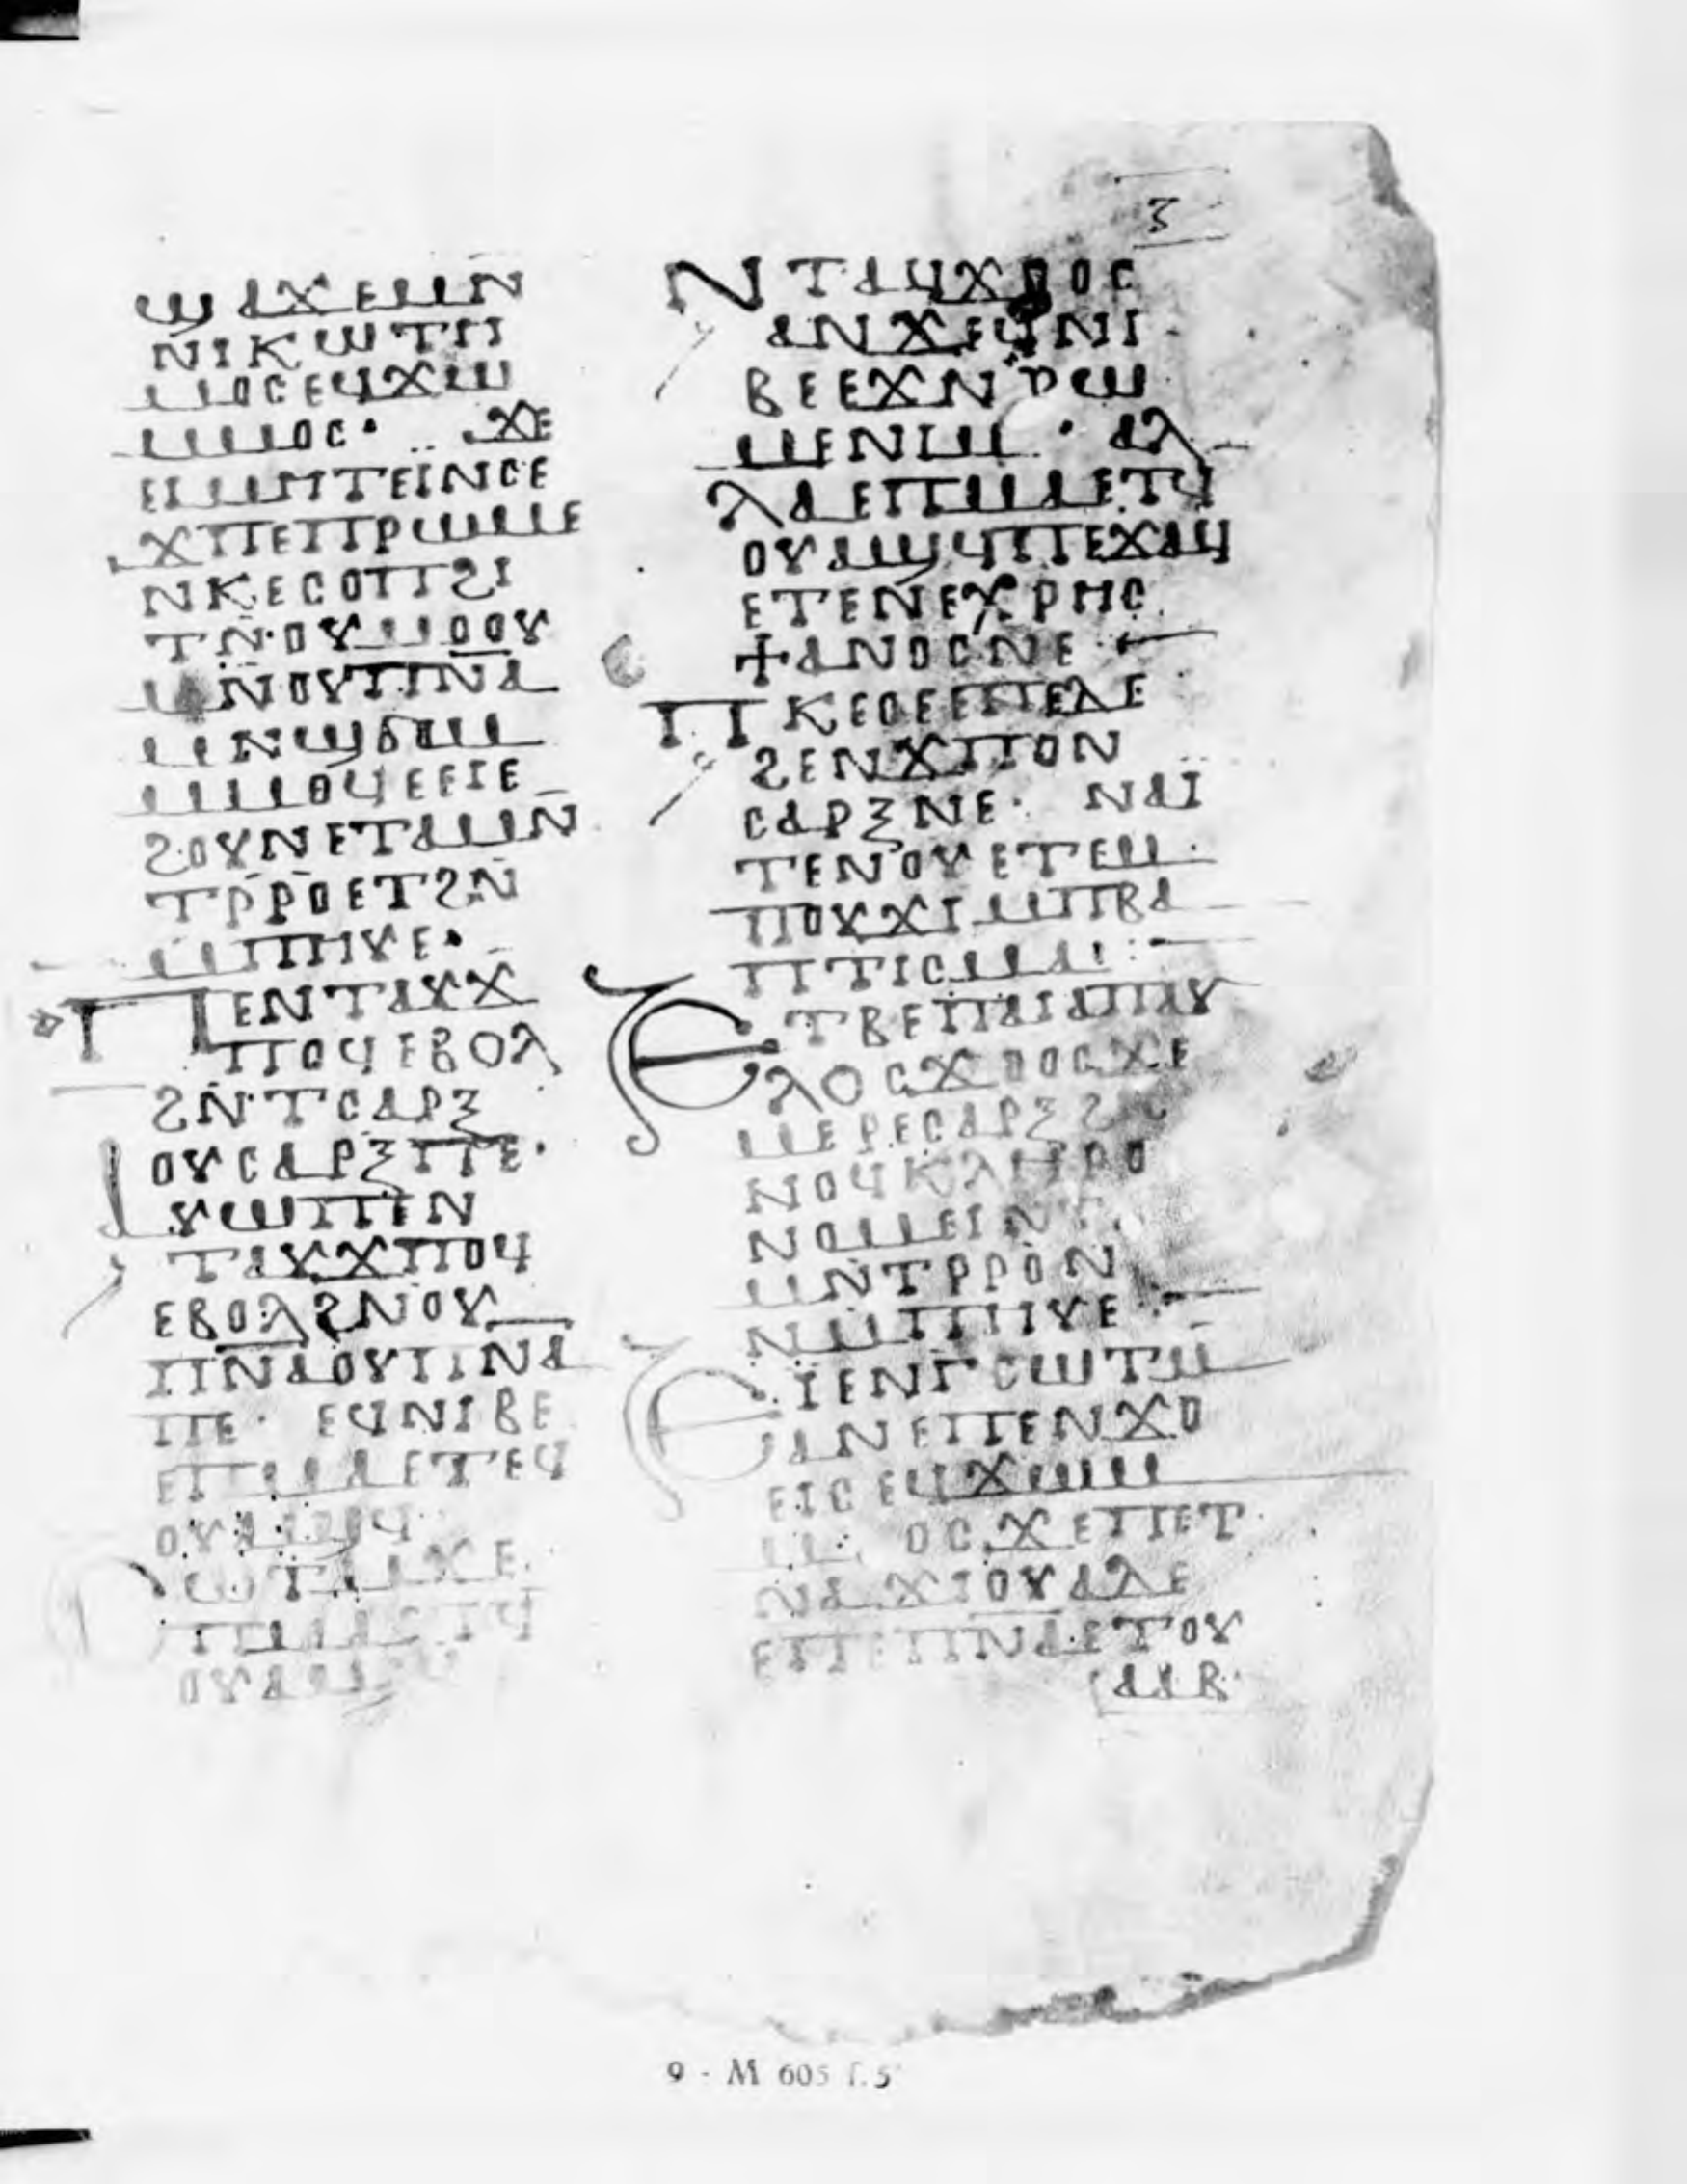 ⲍ
ϣⲁϫⲉⲙⲛ
ⲛⲓⲕⲱⲧⲏ
ⲙⲟⲥⲉϥϫⲱ
ⲙⲙⲟⲥ· ϫⲉ
ⲉⲓⲙⲏⲧⲉⲓⲛⲥⲉ
ϫⲡⲉⲡⲣⲱⲙⲉ
ⲛⲕⲉⲥⲟⲡϩⲓ
ⲧⲛⲟⲩⲙⲟⲟⲩ
ⲙⲛⲟⲩⲡⲛⲁ
ⲙⲛϣϭⲟⲙ
ⲙⲙⲟϥⲉⲉⲓⲉ
ϩⲟⲩⲛⲉⲧⲁⲙⲛ
ⲧⲣⲣⲟⲉⲧϩⲛ
ⲙⲡⲏⲩⲉ·
ⲡⲉⲛⲧⲁⲩϫ
ⲡⲟϥⲉⲃⲟⲗ
ϩⲛⲧⲥⲁⲣⲝ
ⲟⲩⲥⲁⲣⲝⲡⲉ·
ⲁⲩⲱⲡⲉⲛ
ⲧⲁⲩϫⲡⲟϥ
ⲉⲃⲟⲗϩⲛⲟⲩ
ⲡⲛⲁⲟⲩⲡⲛⲁ
ⲡⲉ· ⲉϥⲛⲓⲃⲉ
ⲉⲡⲙⲁⲉⲧⲉϥ
ⲟⲩⲁϣϥ
ⲛⲧⲁϥϫⲟⲟⲥ
ⲁⲛϫⲉϥⲛⲓ
ⲃⲉⲉϫⲛⲣⲱ
ⲙⲉⲛⲓⲙ· ⲁⲗ
ⲗⲁⲉⲡⲙⲁⲉⲧϥ
ⲟⲩⲁϣϥⲡⲉϫⲁϥ
ⲉⲧⲉⲛⲉⲭⲣⲏⲥ
ϯⲁⲛⲟⲥⲛⲉ
ⲡⲕⲉⲥⲉⲉⲡⲉⲇⲉ
ϩⲉⲛϫⲡⲟⲛ
ⲥⲁⲣⲝⲛⲉ· ⲛⲁⲓ
ⲧⲉⲛⲟⲩⲉⲧⲉⲙ
ⲡⲟⲩϫⲓⲙⲡⲃⲁ
ⲡⲧⲓⲥⲙⲁ:
ⲉⲧⲃⲉⲡⲁⲓⲁⲡⲁⲩ
ⲗⲟⲥϫⲟⲟⲥϫⲉ
ⲙⲉⲣⲉⲥⲁⲣⲝϩⲓ
ⲥⲛⲟϥⲕⲗⲏⲣⲟ
ⲛⲟⲙⲉⲓⲛⲧ
ⲙⲛⲧⲣⲣⲟⲛ
ⲛⲙⲡⲏⲩⲉ
ⲉⲓⲉⲛⲧⲥⲱⲧⲙ
ⲁⲛⲉⲡⲉⲛϫⲟ
ⲉⲓⲥⲉϥϫⲱⲙ
ⲙⲟⲥϫⲉⲡⲉⲧ
ⲛⲁϫⲓⲟⲩⲁⲇⲉ
ⲉⲡⲉⲡⲛⲁⲉⲧⲟⲩ
ⲁⲁⲃ·
9 - M 605 f.5